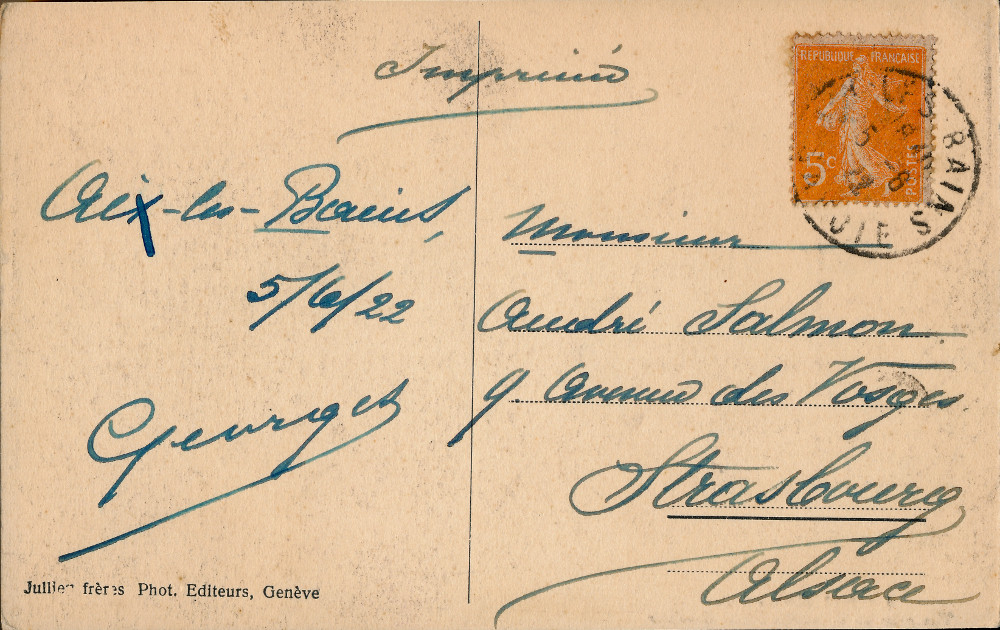 Imprimé
REPUBLIQUE FRANÇAISE
5c
POSTES
BAINS
Aix-les-Bains,
5/6/22
Georges
Monsieur
André Salmon
9. Avenue des Vosges.
Strasbourg
Alsace
Jullien frères Phot. Editeurs, Genève